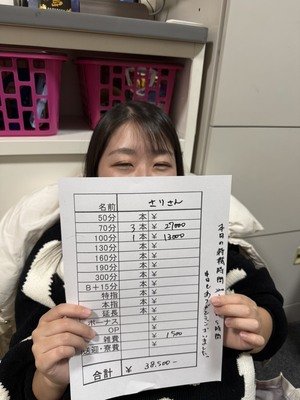 名前 さりさん
50分 本 ¥
70分 3本 ¥ 27000
100分 1本 ¥ 13000
130分 本 ¥
160分 本 ¥
190分 本 ¥
300分 本 ¥
B+15分 本 ¥
特指 本 ¥
本指 本 ¥
延長 本 ¥
ボーナス ¥
OP ¥
雑費 ¥ 1500
送迎・寮費 ¥
合計 ¥ 38,500-
本日の待機時間 時間
本日もありがとうございました。